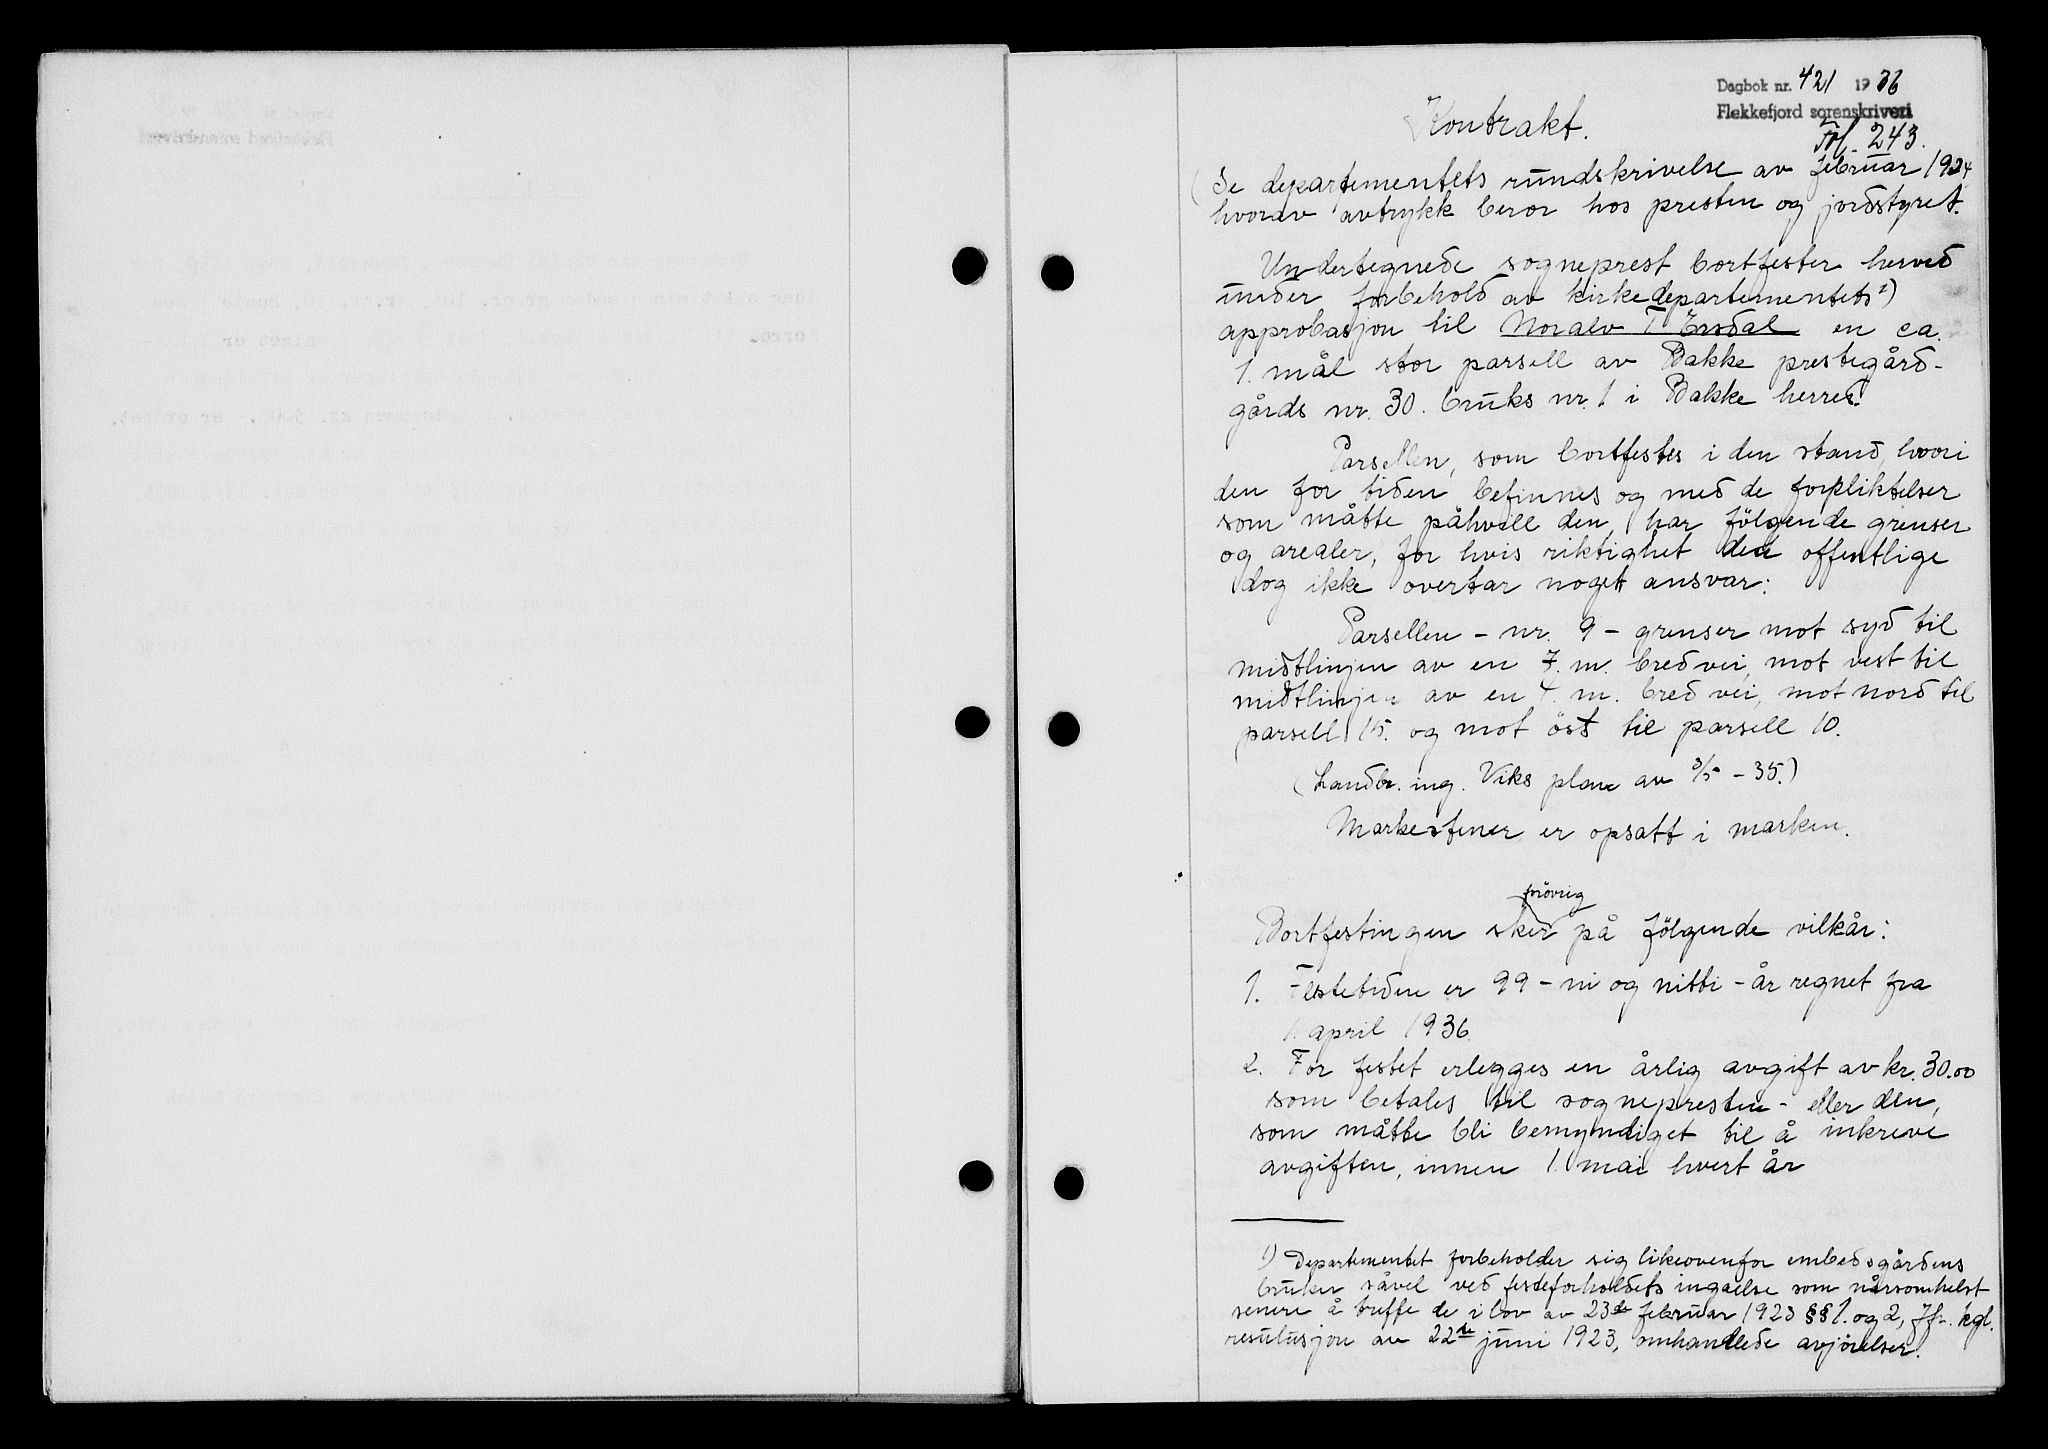 Dagbok nr. 421 1936
Flekkefjord sorenskriveri
Fol. 243.
Kontrakt.
(Se departementets rundskrivelse av februar 1924
hvorav avtrykk beror hos presten og jordstyret.
Undertegnede sogneprest bortfester herved
under forbehold av kirkedepartementets¹)
approbasjon til Noralv T Ersdal en ca.
1. mål stor parsell av Bakke prestegård-
gårds nr. 30. bruks nr. 1 i Bakke herred.
Parsellen, som bortfestes i den stand, hvori
den for tiden befinnes og med de forpliktelser
som måtte påhvile den, har følgende grenser
og arealer, for hvis riktighet det offentlige
dog ikke overtar noget ansvar:
Parsellen - nr. 9 - grenser mot syd til
midtlinjen av en 7. m. bred vei, mot vest til
midtlinjen av en 4. m. bred vei, mot nord til
parsell 15. og mot öst til parsell 10.
(Landbr. ing. Viks plan av 3/5 - 35.)
Markestener er opsatt i marken.
forövrig
Bortfestingen skjer på fölgende vilkår:
1. Festetiden er 99 - ni og nitti - år regnet fra
1. april 1936
2. For festet erlegges en årlig avgift av kr. 30.00
som betales til sognepresten - eller den,
som måtte bli bemyndiget til å inkreve
avgiften, innen 1. mai hvert år
1) Departementet forbeholder sig likeovenfor embedsgårdens
bruker såvel ved festeforholdets ingåelse som nårsomhelst
senere å treffe de i lov av 23de februar 1923 §§ 1. og 2, jf. kgl.
resulusjon av 22de juni 1923, omhandlede avjörelser.